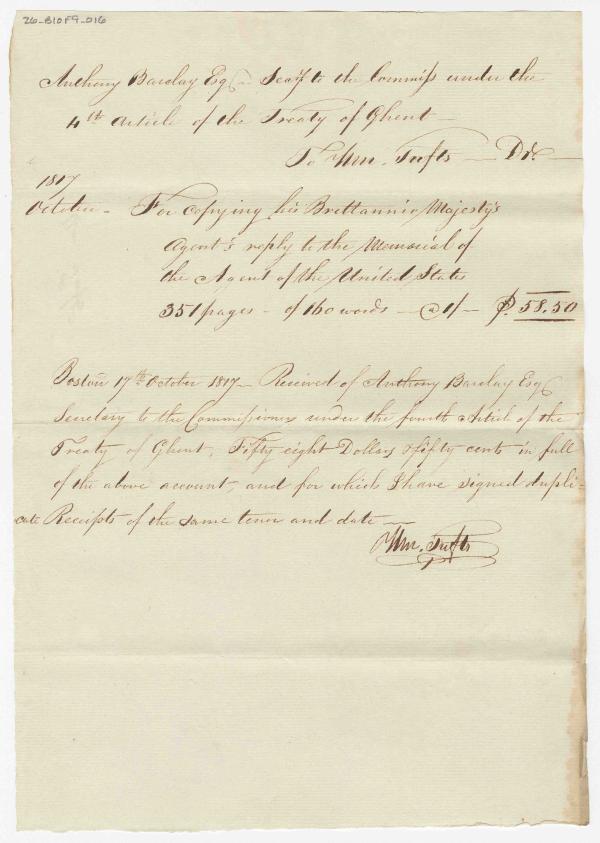 26_B10F9_016
Anthony Barclay Esq - Secy to the Commiss under the
4th Article of the Treaty of Ghent -
To Wm. Tufts - Dr. -
1817
October - For copying his Brittannic Majesty's
Agent's reply to the Memorial of
the Agent of the United States
351 pages - of 160 words - @ 1/ - $. 58.50
Boston 17th October 1817 - Received of Anthony Barclay Esq
Secretary to the Commissioners under the fourth Article of the
Treaty of Ghent, Fifty eight Dollars & fifty cents in full
of the above account, and for which I have signed dupli-
cate Receipts of the same tenor and date -
Wm. Tufts